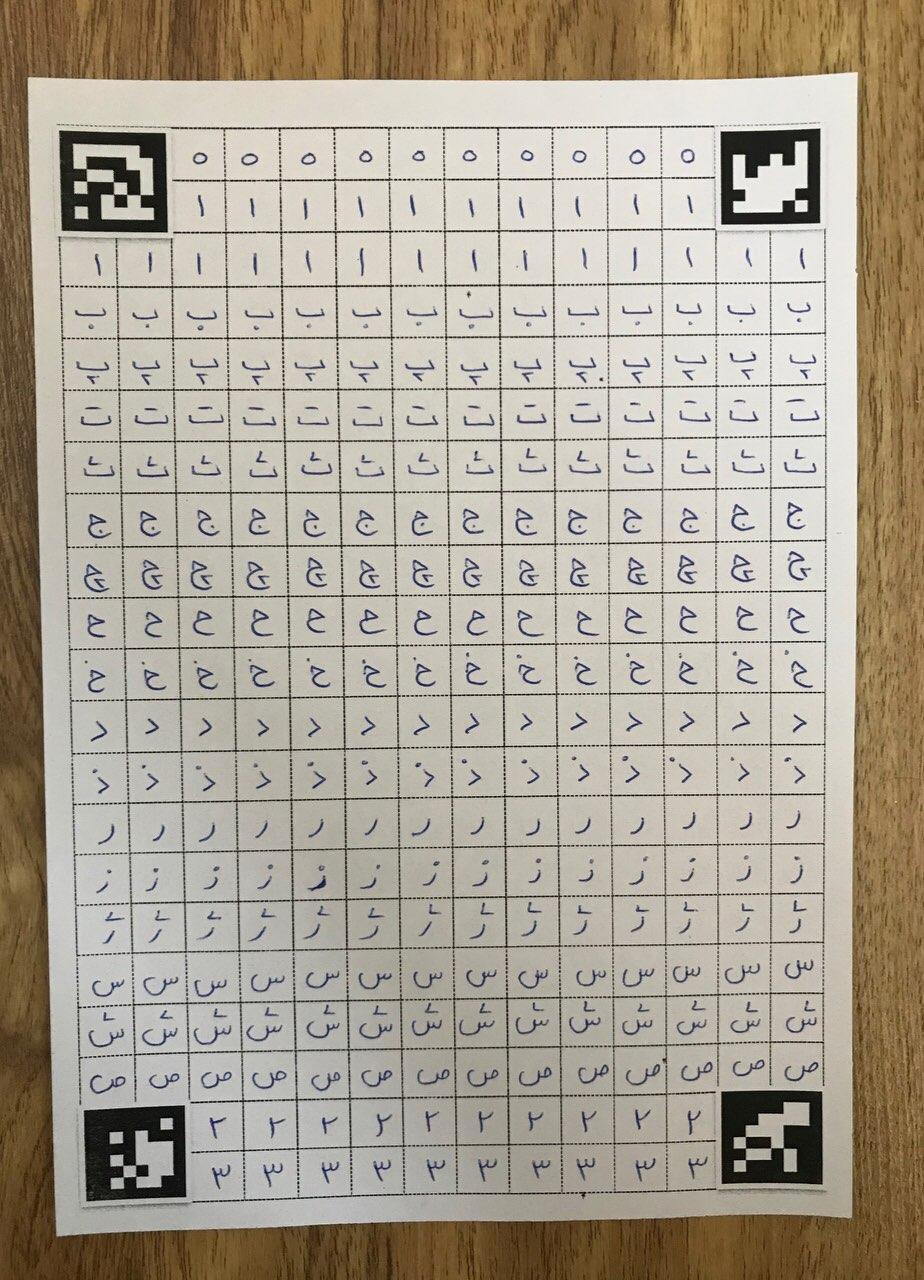 ۰ ۰ ۰ ۰ ۰ ۰ ۰ ۰ ۰ ۰
۱ ۱ ۱ ۱ ۱ ۱ ۱ ۱ ۱ ۱
ا ا ا ا ا ا ا ا ا ا ا ا ا ا
ب ب ب ب ب ب ب ب ب ب ب ب ب ب
پ پ پ پ پ پ پ پ پ پ پ پ پ پ
ت ت ت ت ت ت ت ت ت ت ت ت ت ت
ث ث ث ث ث ث ث ث ث ث ث ث ث ث
ج ج ج ج ج ج ج ج ج ج ج ج ج ج
چ چ چ چ چ چ چ چ چ چ چ چ چ چ
ح ح ح ح ح ح ح ح ح ح ح ح ح ح
خ خ خ خ خ خ خ خ خ خ خ خ خ خ
د د د د د د د د د د د د د د
ذ ذ ذ ذ ذ ذ ذ ذ ذ ذ ذ ذ ذ ذ
ر ر ر ر ر ر ر ر ر ر ر ر ر ر
ز ز ز ز ز ز ز ز ز ز ز ز ز ز
ژ ژ ژ ژ ژ ژ ژ ژ ژ ژ ژ ژ ژ ژ
س س س س س س س س س س س س س س
ش ش ش ش ش ش ش ش ش ش ش ش ش ش
ص ص ص ص ص ص ص ص ص ص ص ص ص ص
۲ ۲ ۲ ۲ ۲ ۲ ۲ ۲ ۲ ۲
۳ ۳ ۳ ۳ ۳ ۳ ۳ ۳ ۳ ۳